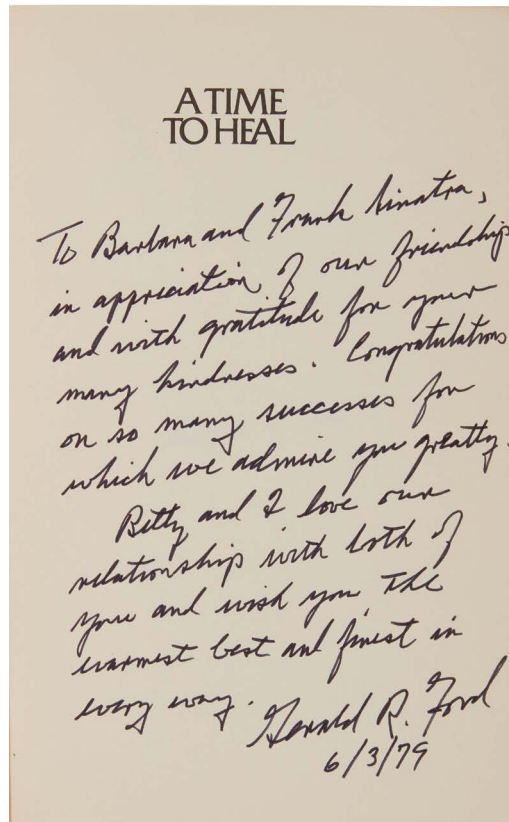 A TIME
TO HEAL
To Barbara and Frank Sinatra,
in appreciation of our friendship
and with gratitude for your
many kindnesses. Congratulations
on so many successes for
which we admire you greatly.
Betty and I love our
relationship with both of
you and wish you the
warmest best and finest in
every way.
Gerald R. Ford
6/3/79